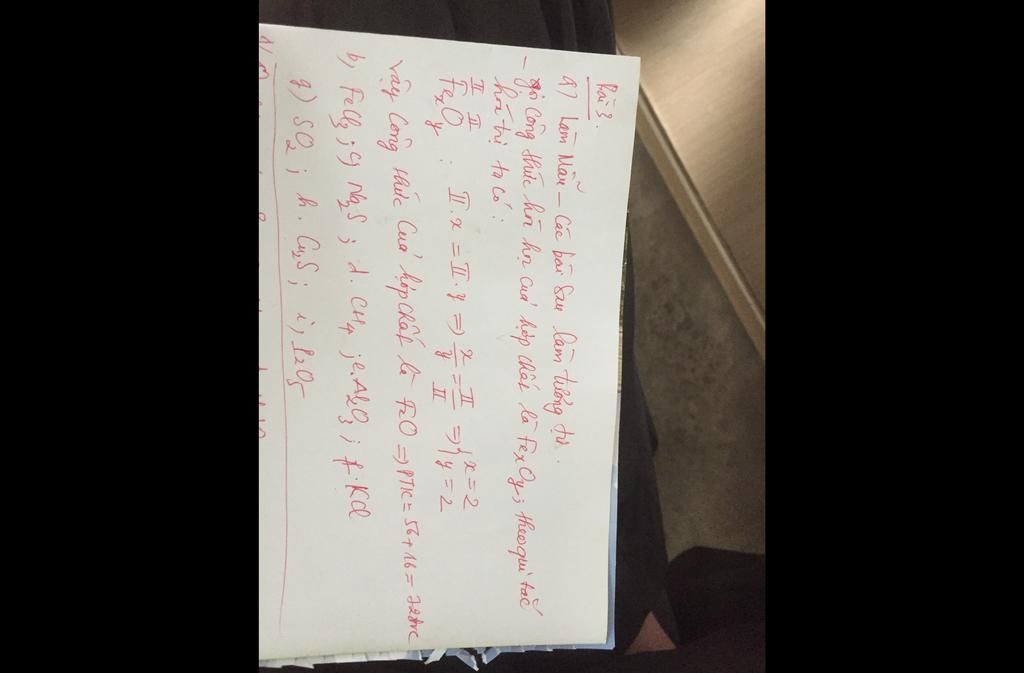 Bài 3.
a) Làm Mẫu - Các bài sau làm tương tự.
- gọi Công thức hóa học của hợp chất là FexOy; theo qui tắc
hóa trị ta có:
II II
FexOy : II.x = II.y => x/y = II/II => { x = 2 y = 2
Vậy Công thức của hợp chất là FeO => PTK = 56 + 16 = 72đvc
b, FeCl3; c, Na2S; d. CH4; e. Al2O3; f. KCl
g) SO2; h. Cu2S; i, P2O5